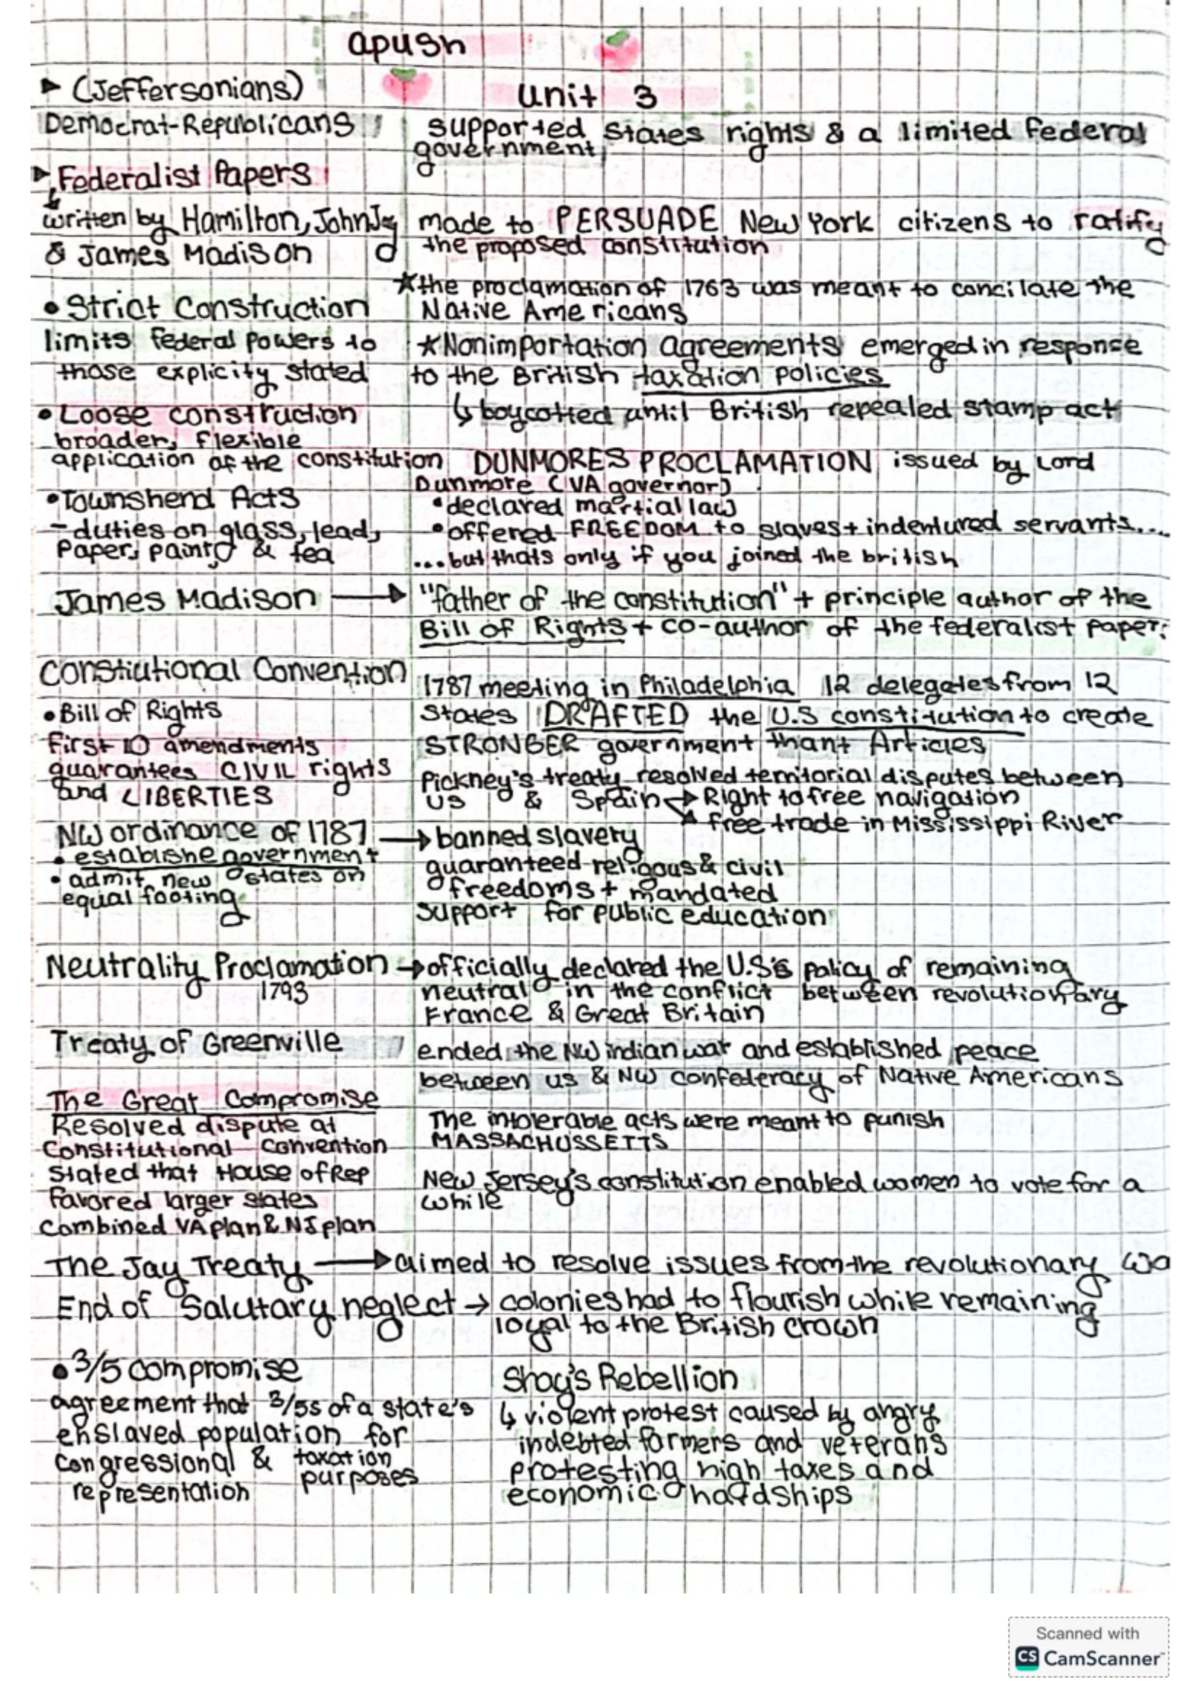 apush
unit 3
(Jeffersonians)
Democrat-Republicans
supported states rights & a limited federal
government
Federalist Papers
written by Hamilton, John Jay
& James Madison
made to PERSUADE New York citizens to ratify
the proposed constitution
★the proclamation of 1763 was meant to concilate the
Native Americans
• Strict Construction
limits federal powers to
those explicity stated
★Nonimportation agreements emerged in response
to the British taxation policies
↳ boycotted until British repealed stamp act
• Loose construction
broader, flexible
application of the constitution
DUNMORES PROCLAMATION issued by Lord
Dunmore (VA governor)
• declared martial law
• offered FREEDOM to slaves + indentured servants....
...but thats only if you joined the british
• Townshend Acts
- duties on glass, lead,
Paper, paint, & tea
James Madison → "father of the constitution" + principle author of the
Bill of Rights + co-author of the federalist paper:
Constiutional Convention
1787 meeting in Philadelphia 12 delegates from 12
states DRAFTED the U.S constitution to create
STRONGER government thant Articles
• Bill of Rights
first 10 amendments
guarantees CIVIL rights
and LIBERTIES
Pickney's treaty resolved territorial disputes between
US & Spain → Right to free navigation
free trade in Mississippi River
NW ordinance of 1787 → banned slavery
• establishe government
• admit new states on
equal footing
guaranteed religous & civil
freedoms + mandated
support for public education
Neutrality Proclamation → officially declared the U.S's policy of remaining
1793
neutral in the conflict between revolutionary
France & Great Britain
Treaty of Greenville
ended the NW indian war and established peace
between us & NW confederacy of Native Americans
The Great Compromise
Resolved dispute at
Constitutional Convention
stated that House of Rep
favored larger states
combined VA plan & NJ plan
The intolerable acts were meant to punish
MASSACHUSSETTS
New Jersey's constitution enabled women to vote for a
while
The Jay Treaty → aimed to resolve issues from the revolutionary wa
End of Salutary neglect → colonies had to flourish while remaining
loyal to the British crown
• 3/5 compromise
agreement that 3/5s of a state's
enslaved population for
congressional & taxation
representation purposes
Shay's Rebellion
↳ violent protest caused by angry
indebted farmers and veterans
protesting high taxes and
economic hardships
Scanned with
CS CamScanner